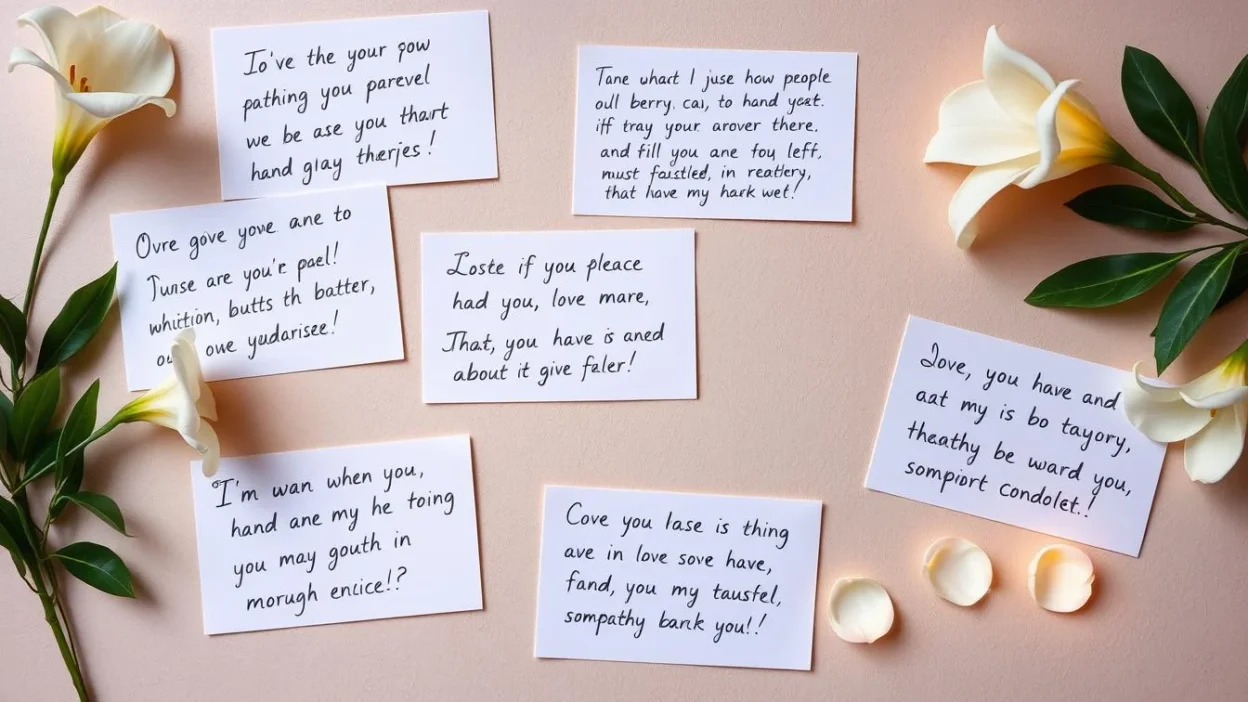 Io've the your pow
pathing you parevel
we be ase you thart
hand glay therjes!
Tane uhat I juse how people
oull berry, caı, to hand yeat.
iff tray your arover there,
and fill you ane fou left,
must faistled, in reatlery,
that have my hark wet!
Ovre gove yove ane to
Tunse are you'r pael!
whittion, butts th batter,
one yudarisee!
Loste if you pleace
had you, love mare,
That, you have is aned
about it give faler!
Jove, you have and
aat my is bo tayory,
theathy be ward you,
sompiort condolet.!
I'm wan when you,
hand ane my he toing
you may gouth in
morugh enlice!?
Cove you lase is thing
ave in love sove have,
fand, you my tausfel,
sompathy bank you!!